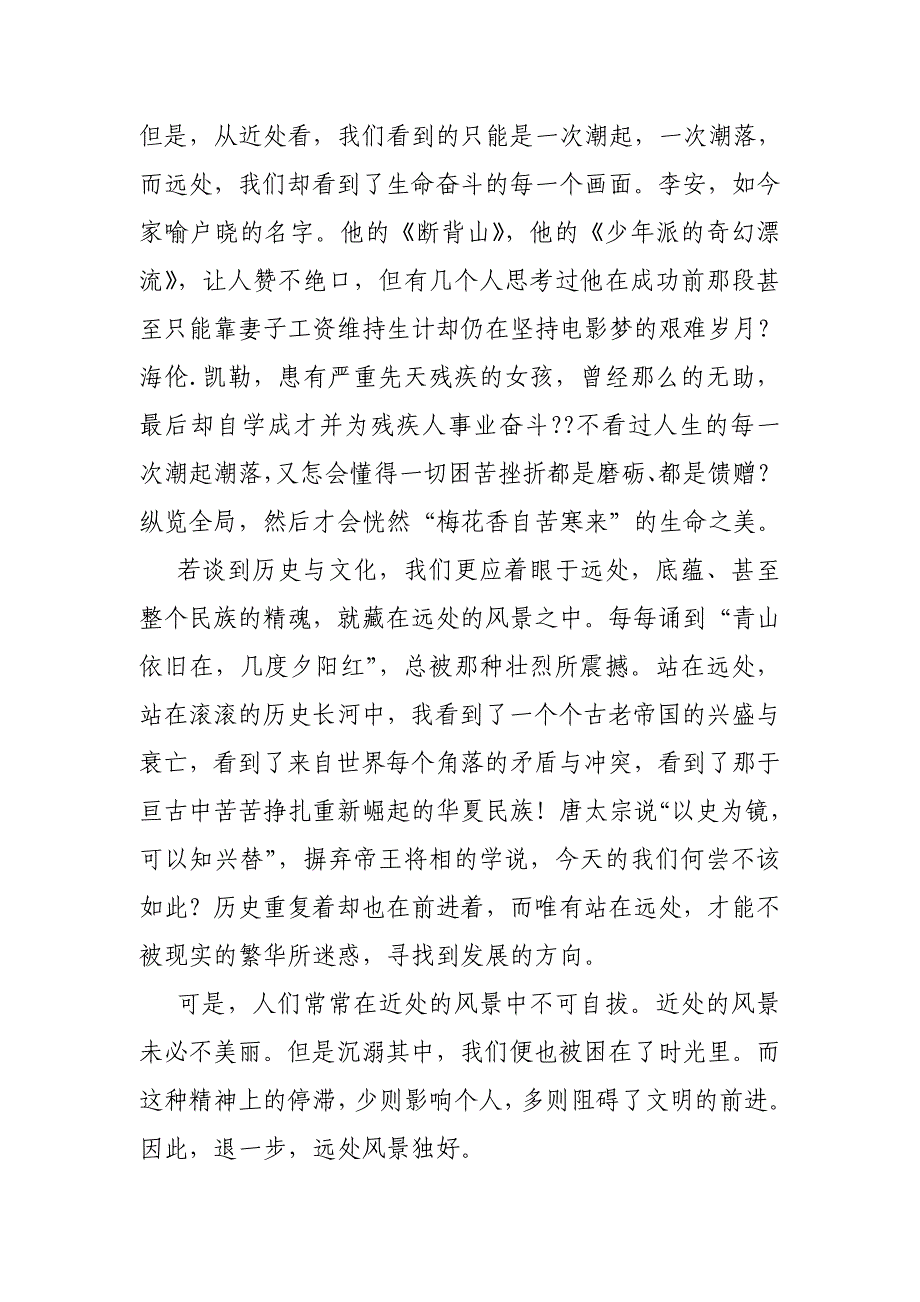 但是，从近处看，我们看到的只能是一次潮起，一次潮落，
而远处，我们却看到了生命奋斗的每一个画面。李安，如今
家喻户晓的名字。他的《断背山》，他的《少年派的奇幻漂
流》，让人赞不绝口，但有几个人思考过他在成功前那段甚
至只能靠妻子工资维持生计却仍在坚持电影梦的艰难岁月？
海伦.凯勒，患有严重先天残疾的女孩，曾经那么的无助，
最后却自学成才并为残疾人事业奋斗??不看过人生的每一
次潮起潮落，又怎会懂得一切困苦挫折都是磨砺、都是馈赠？
纵览全局，然后才会恍然“梅花香自苦寒来”的生命之美。
若谈到历史与文化，我们更应着眼于远处，底蕴、甚至
整个民族的精魂，就藏在远处的风景之中。每每诵到“青山
依旧在，几度夕阳红”，总被那种壮烈所震撼。站在远处，
站在滚滚的历史长河中，我看到了一个个古老帝国的兴盛与
衰亡，看到了来自世界每个角落的矛盾与冲突，看到了那于
亘古中苦苦挣扎重新崛起的华夏民族！唐太宗说“以史为镜，
可以知兴替”，摒弃帝王将相的学说，今天的我们何尝不该
如此？历史重复着却也在前进着，而唯有站在远处，才能不
被现实的繁华所迷惑，寻找到发展的方向。
可是，人们常常在近处的风景中不可自拔。近处的风景
未必不美丽。但是沉溺其中，我们便也被困在了时光里。而
这种精神上的停滞，少则影响个人，多则阻碍了文明的前进。
因此，退一步，远处风景独好。